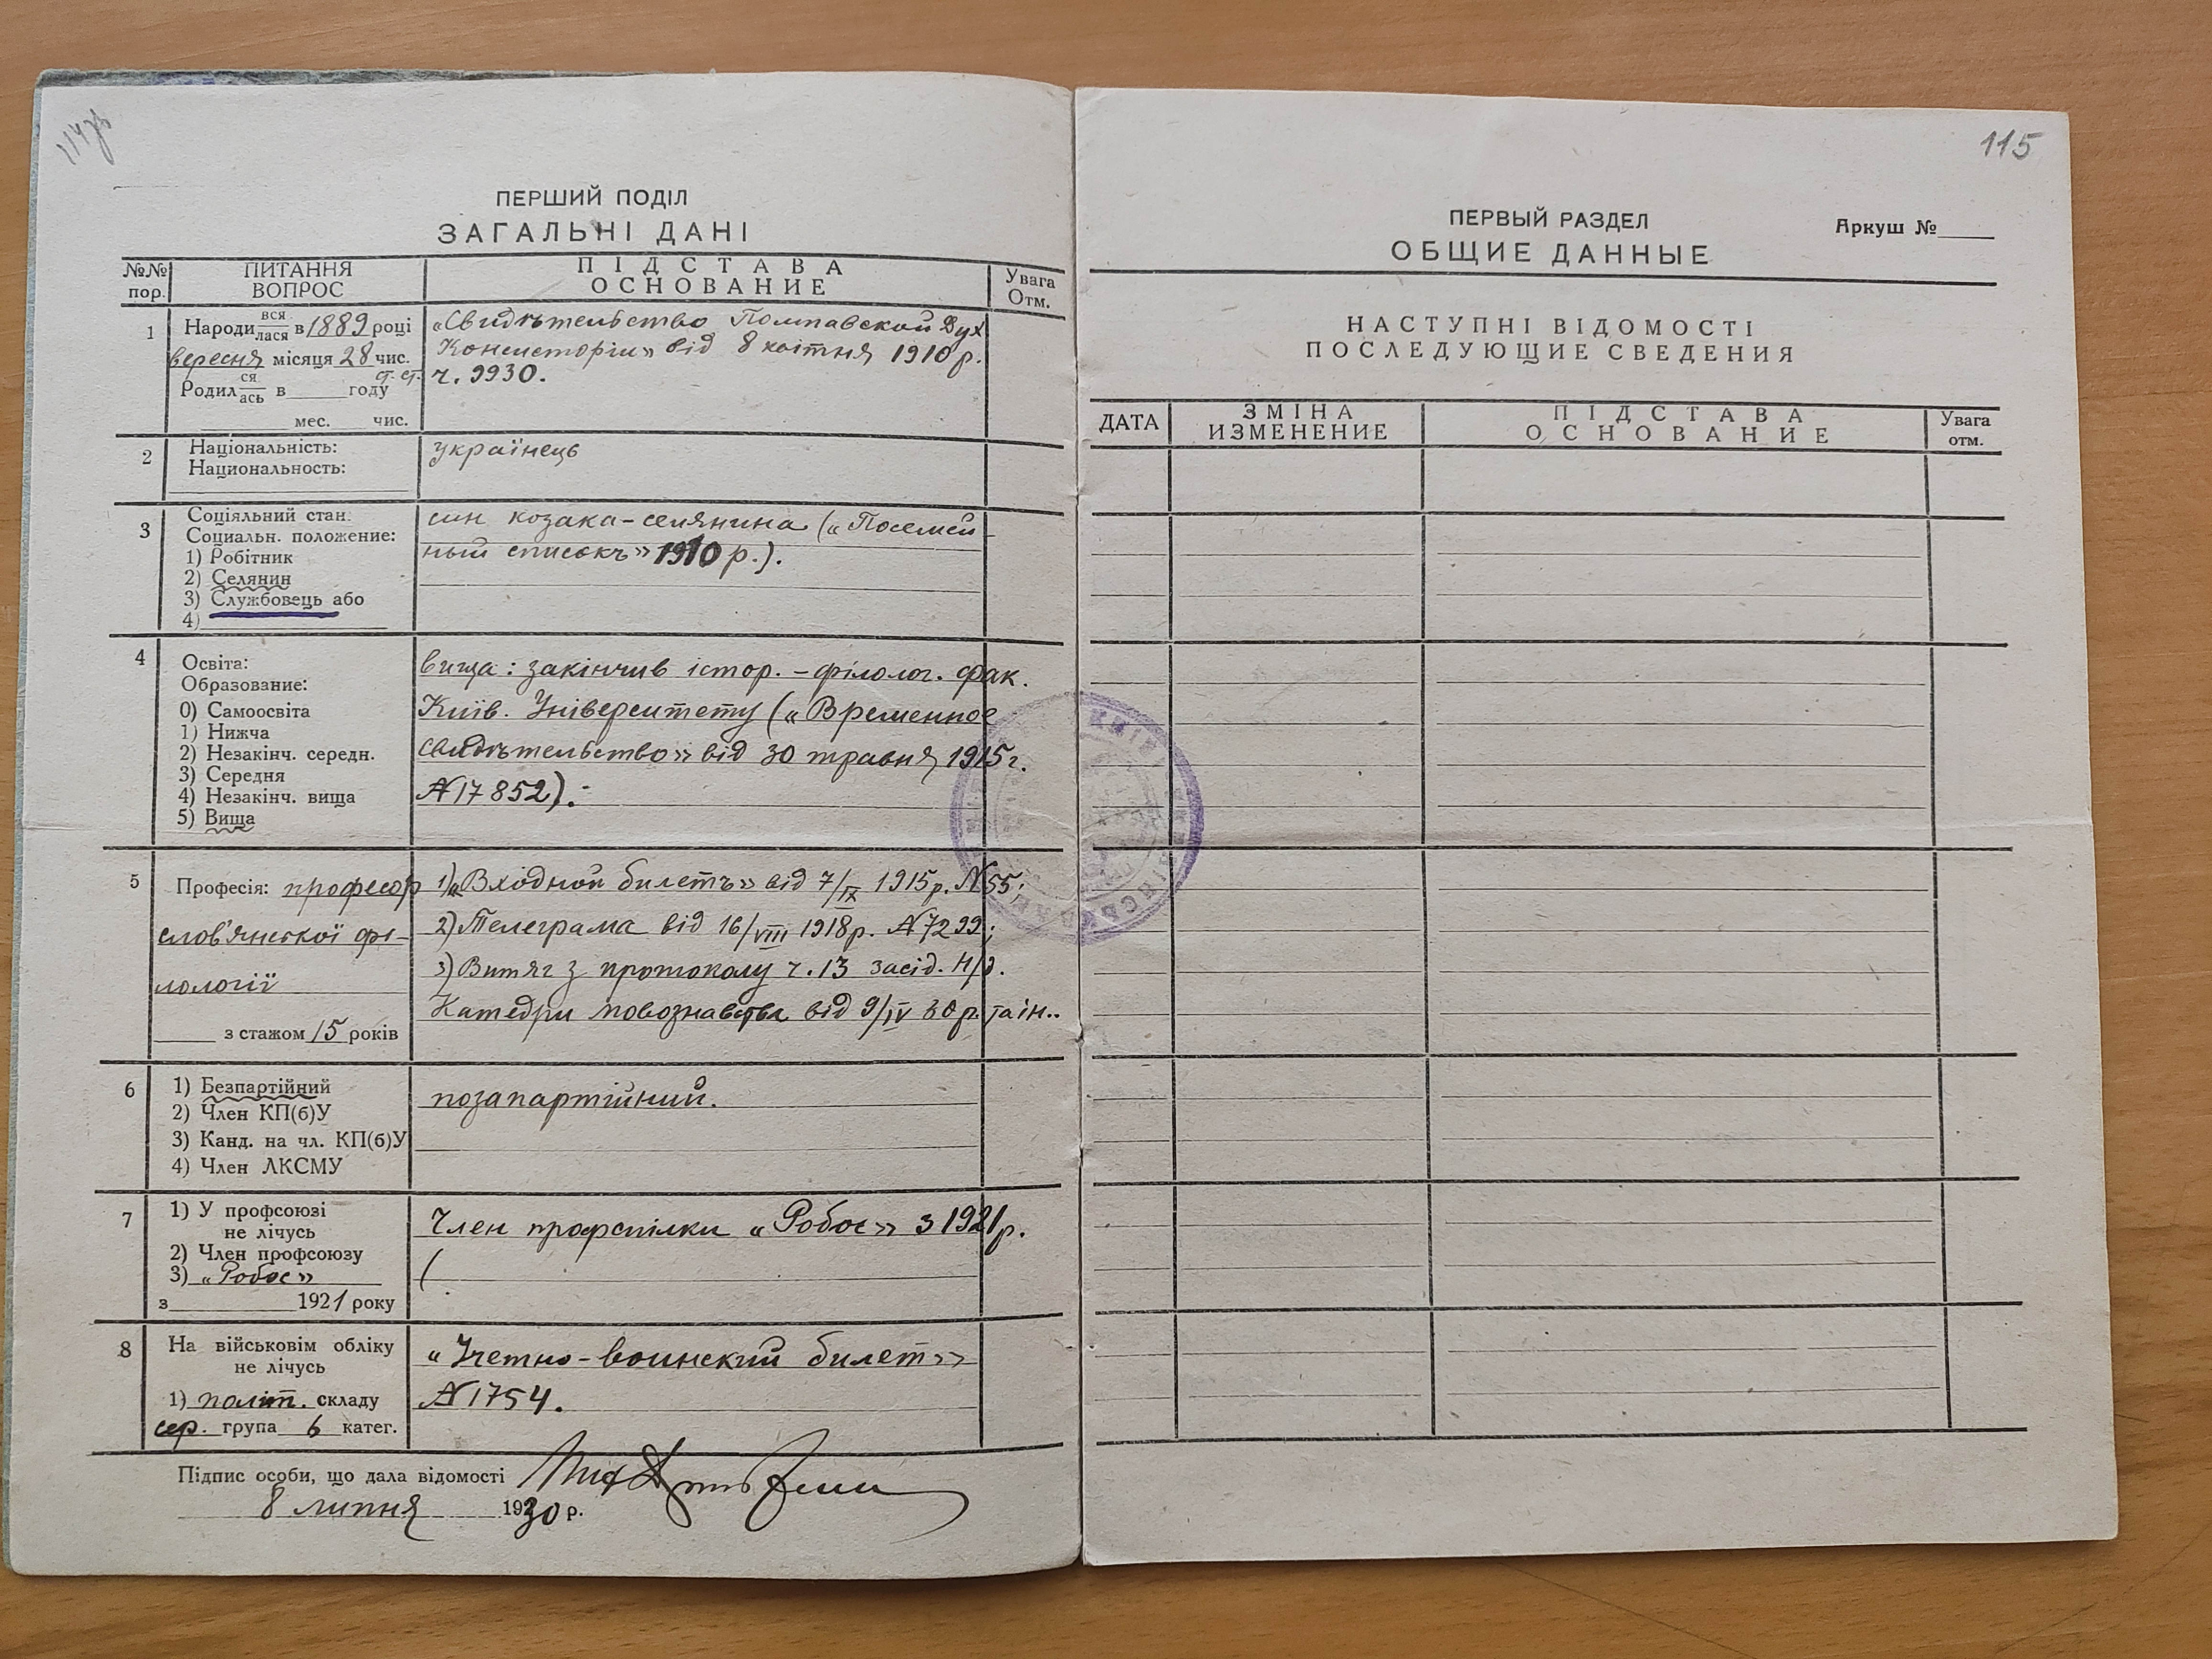 114зв
ПЕРШИЙ ПОДІЛ
ЗАГАЛЬНІ ДАНІ
№№ пор.
ПИТАННЯ
ВОПРОС
ПІДСТАВА
ОСНОВАНИЕ
Увага
Отм.
1
Народи вся/лася в 1889 році
вересня місяця 28 чис.
ст. ст.
Родил ся/ась в ____ году
____ мес. ____ чис.
«Свидѣтельство Полтавской Дух
Консисторіи» від 8 квітня 1910 р.
ч. 9930.
2
Національність:
Национальность:
українець
3
Соціяльний стан.
Социальн. положение:
1) Робітник
2) Селянин
3) Службовець або
4)
син козака-селянина («Посемей-
ный списокъ» 1910 р.).
4
Освіта:
Образование:
0) Самоосвіта
1) Нижча
2) Незакінч. середн.
3) Середня
4) Незакінч. вища
5) Вища
вища: закінчив істор.-філолог. фак.
Київ. Університету («Временное
свидѣтельство» від 30 травня 1915 г.
№ 17852).
5
Професія: професор
слов'янської фі-
лології
з стажом 15 років
1) «Входной билетъ» від 7/IX 1915 р. № 55;
2) Телеграма від 16/VIII 1918 р. № 7299;
3) Витяг з протоколу ч. 13 засід. Н/д.
Катедри мовознавства від 9/IV 30 р. та ін..
6
1) Безпартійний
2) Член КП(б)У
3) Канд. на чл. КП(б)У
4) Член ЛКСМУ
позапартійний.
7
1) У профсоюзі
не лічусь
2) Член профсоюзу
3) «Робос»
з ____ 1921 року
Член профспілки «Робос» з 1921 р.
(
8
На військовім обліку
не лічусь
1) політ. складу
сер. група 6 катег.
«Учетно-воинский билет»
№ 1754.
Підпис особи, що дала відомості
8 липня 1930 р.
115
ПЕРВЫЙ РАЗДЕЛ
Аркуш №
ОБЩИЕ ДАННЫЕ
НАСТУПНІ ВІДОМОСТІ
ПОСЛЕДУЮЩИЕ СВЕДЕНИЯ
ДАТА
ЗМІНА
ИЗМЕНЕНИЕ
ПІДСТАВА
ОСНОВАНИЕ
Увага
отм.